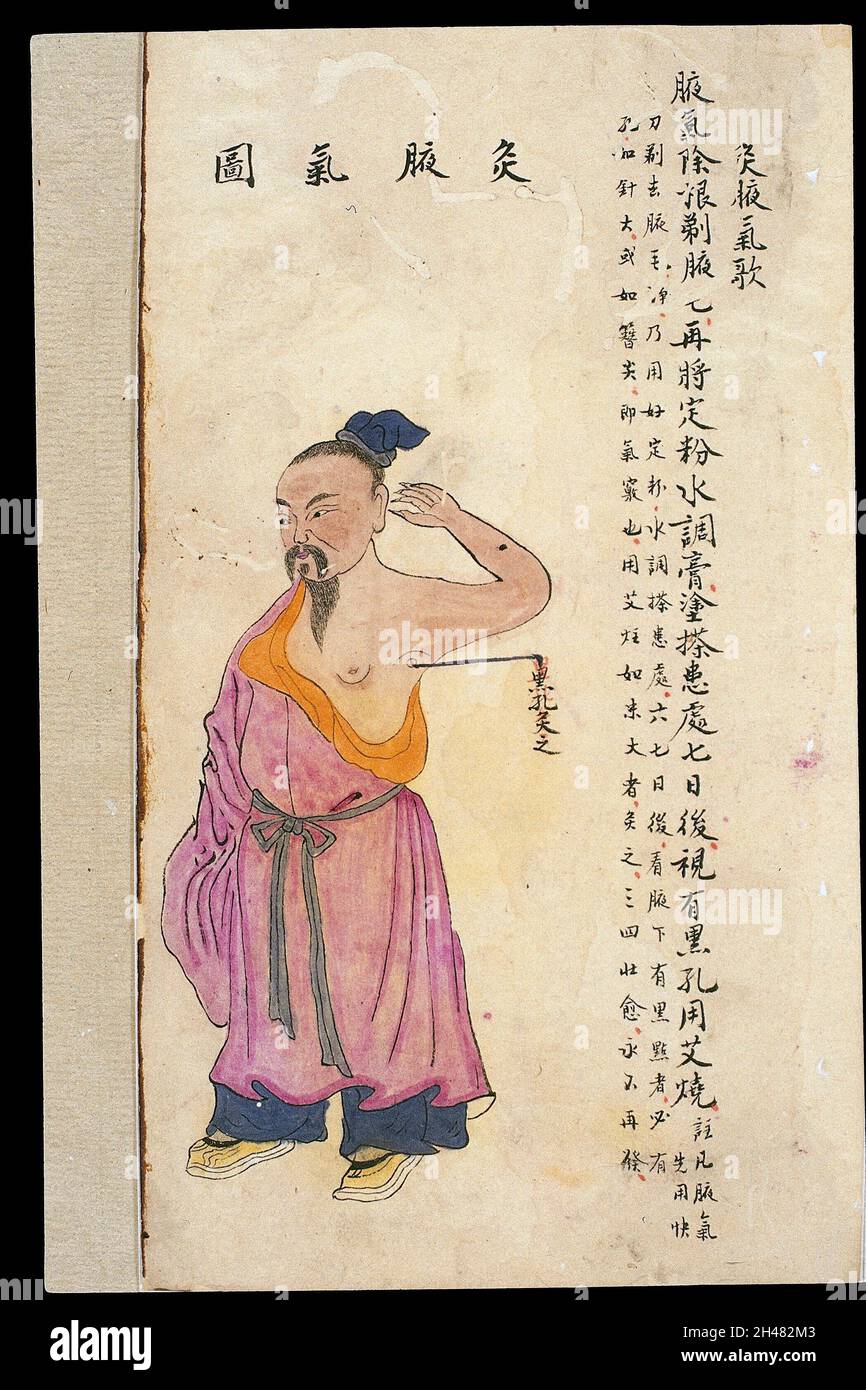 灸腋氣歌
腋氣除根剃腋毛再將定粉水調膏塗搽患處七日後視有黑孔用艾燒
註凡腋氣
先用快
刀剃去腋毛淨乃用好定粉水調搽患處六七日後看腋下有黑點者必有
孔如針大或如簪尖即氣竅也用艾炷如米大者灸之三四壯愈永不再發
灸腋氣圖
黑孔灸之
alamy
Image ID: 2H482M3
www.alamy.com